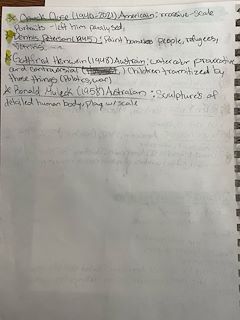 Chuck Close (1940-2021) American: massive-scale
Portraits - left him paralysed,
Dennis Peterson (1945): Paint homeless people, refugees,
Gottfried Helnwein (1948) Austrian: watercolor provocative
and controversial | Children tramitized by
these things (Politics, war)
Ronald Mueck (1958) Australian: Sculptures of
detailed human body, play w/ scale